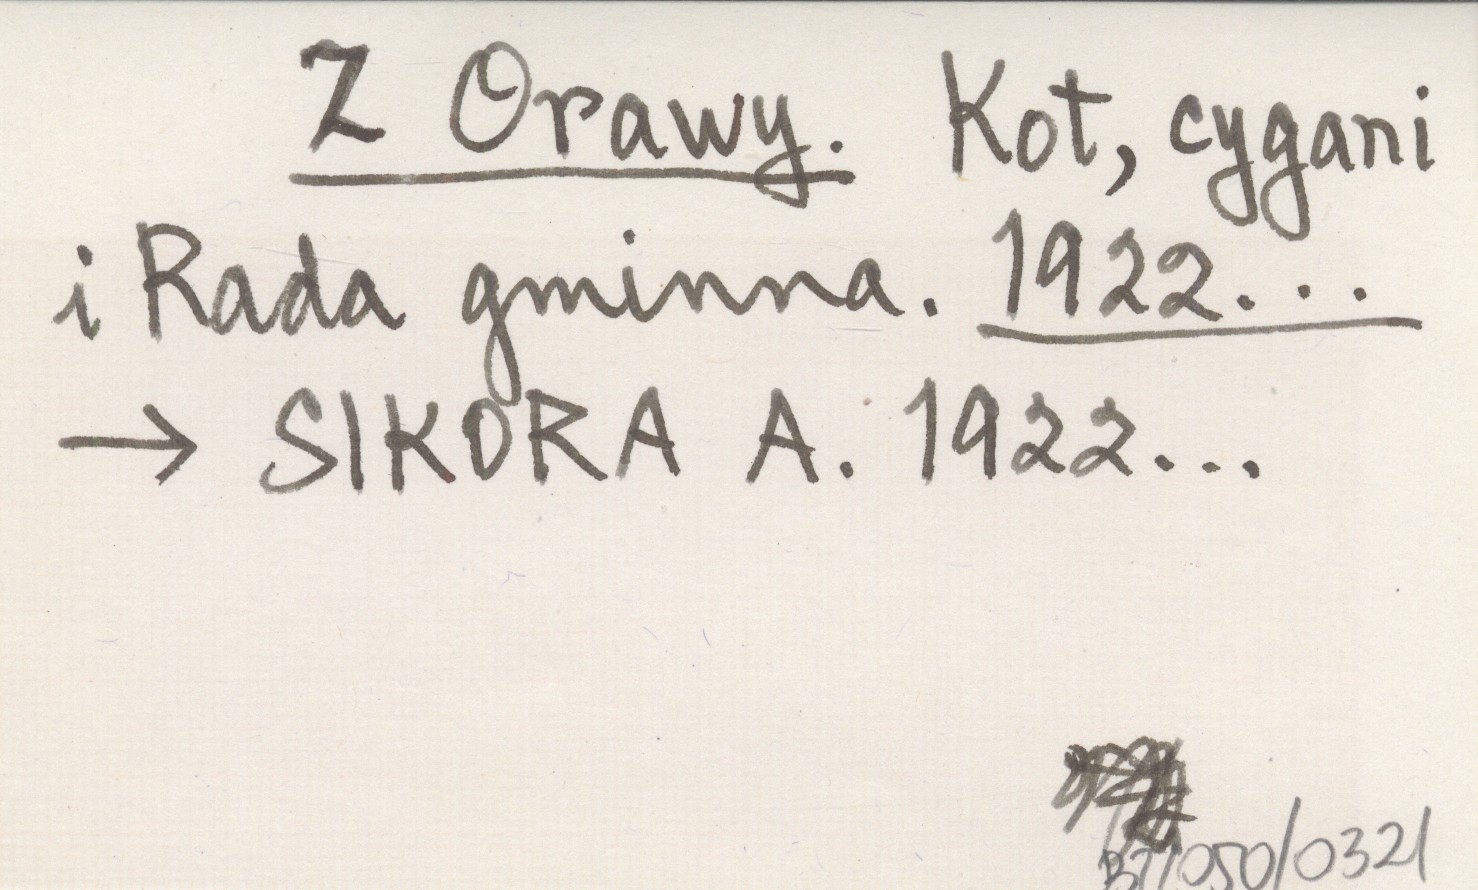 Z Orawy. Kot, cygani
i Rada gminna. 1922...
→ SIKORA A. 1922...
B7/050/0321